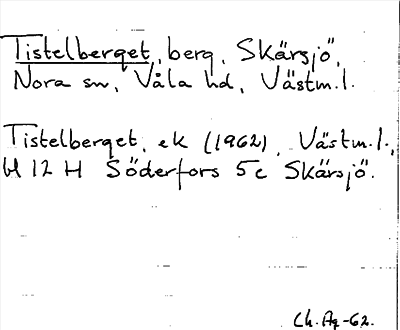 Tistelberget, berg, Skärsjö,
Nora sn, Våla hd, Västm.l.
Tistelberget, ek (1962), Västm.l.,
12 H Söderfors 5c Skärsjö.
Ch. Ag -62.